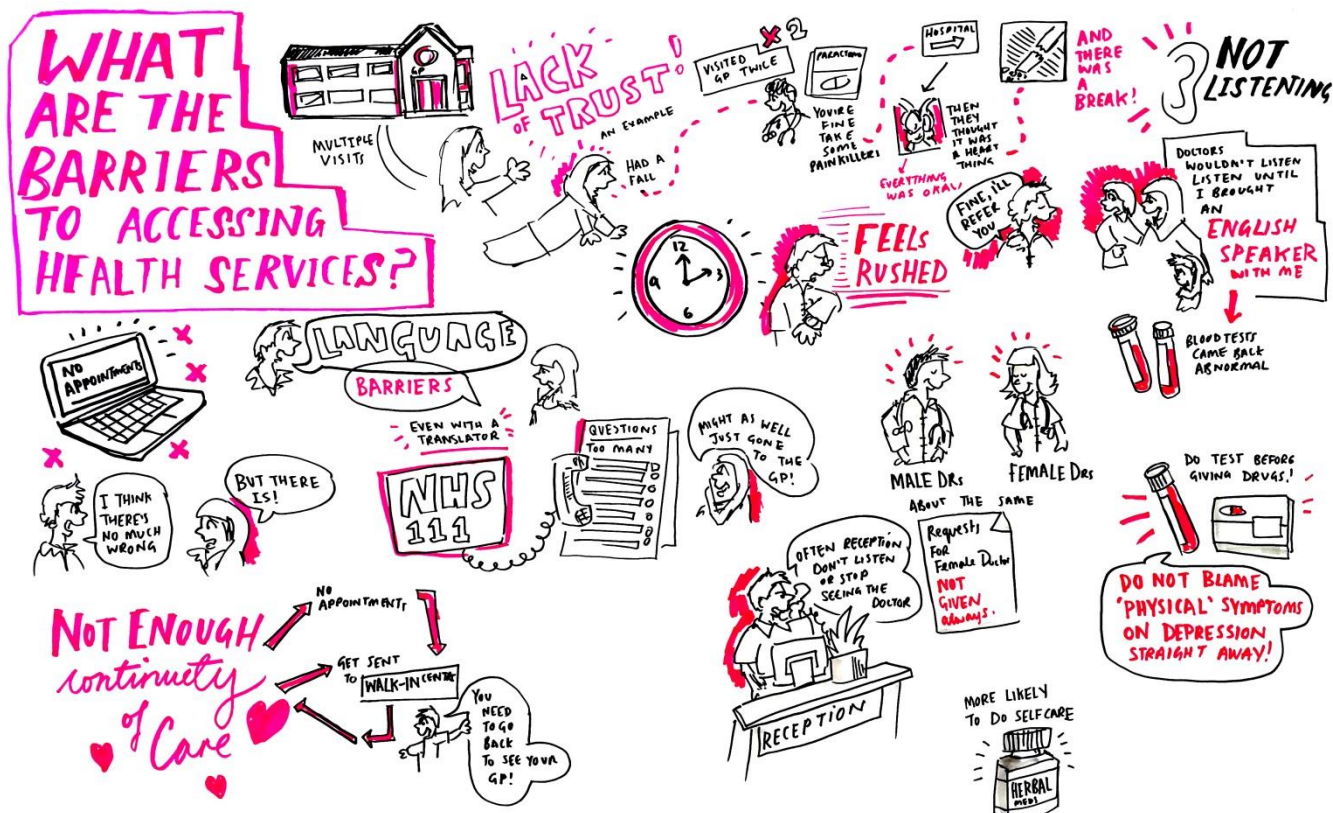 WHAT
ARE THE
BARRIERS
TO ACCESSING
HEALTH SERVICES?
GP
MULTIPLE
VISITS
A
LACK
OF TRUST!
AN EXAMPLE
HAD A
FALL
x2
VISITED
GP TWICE
PARACETAMOL
YOU'RE
FINE
TAKE
SOME
PAINKILLERS
HOSPITAL
THEN
THEY
THOUGHT
IT WAS
A HEART
THING
EVERYTHING
WAS OKAY
AND
THERE
WAS
A
BREAK!
NOT
LISTENING
DOCTORS
WOULDN'T LISTEN
LISTEN UNTIL
I BROUGHT
AN
ENGLISH
SPEAKER
WITH ME
BLOOD TESTS
CAME BACK
ABNORMAL
12
3
6
9
FEELS
RUSHED
FINE, I'LL
REFER
YOU
NO
APPOINTMENTS
LANGUAGE
BARRIERS
EVEN WITH A
TRANSLATOR
NHS
111
QUESTIONS
TOO MANY
MIGHT AS WELL
JUST GONE
TO THE
GP!
I THINK
THERE'S
NO MUCH
WRONG
BUT THERE
IS!
MALE DRs
FEMALE DRs
ABOUT THE SAME
Requests
FOR
Female Doctor
NOT
GIVEN
always.
DO TEST BEFORE
GIVING DRUGS!
DO NOT BLAME
'PHYSICAL' SYMPTOMS
ON DEPRESSION
STRAIGHT AWAY!
NOT ENOUGH
continuety
of
Care
NO
APPOINTMENTS
GET SENT
TO
WALK-IN CENTA
YOU
NEED
TO GO
BACK
TO SEE YOUR
GP!
OFTEN RECEPTION
DON'T LISTEN
OR STOP
SEEING THE
DOCTOR
RECEPTION
MORE LIKELY
TO DO SELFCARE
HERBAL
MEDS